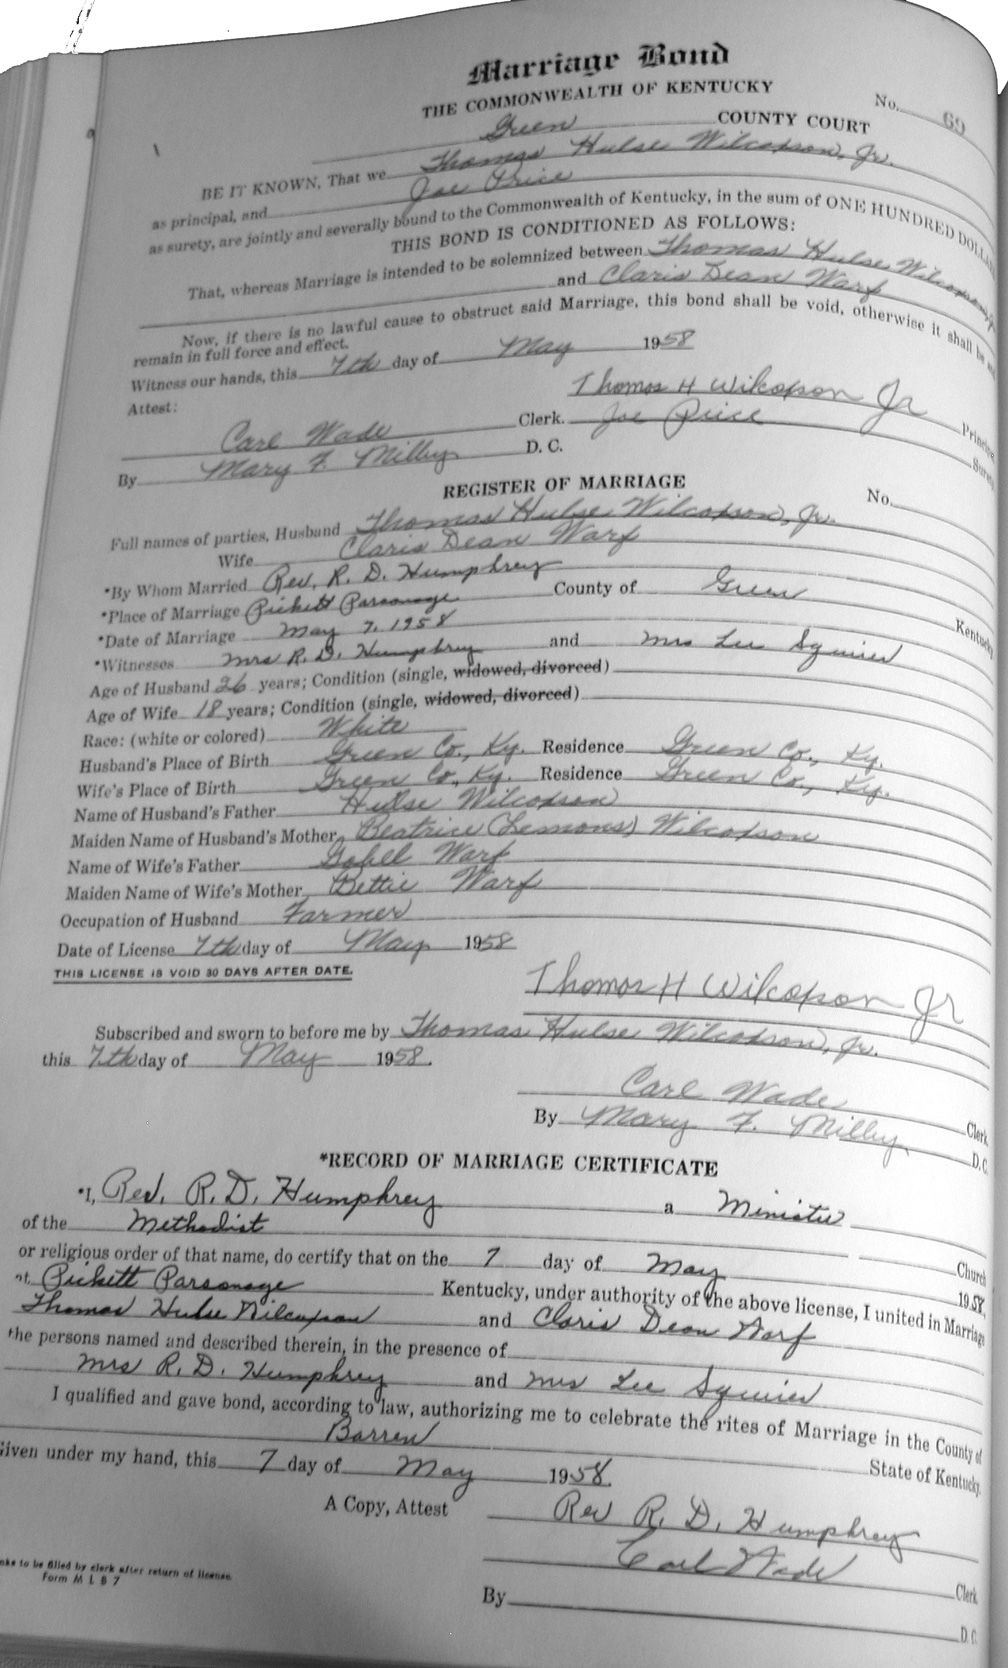 Marriage Bond
THE COMMONWEALTH OF KENTUCKY
No. 69
Green COUNTY COURT
BE IT KNOWN, That we Thomas Hulse Wilcoxson, Jr.
as principal, and Joe Price
as surety, are jointly and severally bound to the Commonwealth of Kentucky, in the sum of ONE HUNDRED DOLLA
THIS BOND IS CONDITIONED AS FOLLOWS:
That, whereas Marriage is intended to be solemnized between Thomas Hulse Wilcoxson, Jr
and Claris Dean Warf
Now, if there is no lawful cause to obstruct said Marriage, this bond shall be void, otherwise it shall be and
remain in full force and effect.
Witness our hands, this 7th day of May 1958
Attest: Thomas H Wilcoxson Jr Principal
Carl Wade Clerk. Joe Price Surety
By Mary F. Milby D. C.
REGISTER OF MARRIAGE
No.
Full names of parties, Husband Thomas Hulse Wilcoxson, Jr.
Wife Claris Dean Warf
*By Whom Married Rev. R. D. Humphrey
*Place of Marriage Pickett Parsonage County of Green Kentucky
*Date of Marriage May 7, 1958
*Witnesses Mrs R. D. Humphrey and Mrs Lee Squires
Age of Husband 26 years; Condition (single, widowed, divorced)
Age of Wife 18 years; Condition (single, widowed, divorced)
Race: (white or colored) White
Husband's Place of Birth Green Co., Ky. Residence Green Co., Ky.
Wife's Place of Birth Green Co., Ky. Residence Green Co., Ky.
Name of Husband's Father Hulse Wilcoxson
Maiden Name of Husband's Mother Beatrice (Lemons) Wilcoxson
Name of Wife's Father Gobell Warf
Maiden Name of Wife's Mother Bettie Warf
Occupation of Husband Farmer
Date of License 7th day of May 1958
THIS LICENSE IS VOID 30 DAYS AFTER DATE.
Thomas H Wilcoxson Jr
Subscribed and sworn to before me by Thomas Hulse Wilcoxson, Jr.
this 7th day of May 1958.
Carl Wade Clerk
By Mary F. Milby D. C.
*RECORD OF MARRIAGE CERTIFICATE
*I, Rev. R. D. Humphrey a Minister
of the Methodist Church
or religious order of that name, do certify that on the 7 day of May 1958,
at Pickett Parsonage Kentucky, under authority of the above license, I united in Marriage
Thomas Hulse Wilcoxson and Claris Dean Warf
the persons named and described therein, in the presence of
Mrs R. D. Humphrey and Mrs Lee Squires
I qualified and gave bond, according to law, authorizing me to celebrate the rites of Marriage in the County of
Barren State of Kentucky.
Given under my hand, this 7 day of May 1958.
A Copy, Attest Rev R. D. Humphrey
Carl Wade Clerk
By D. C.
nks to be filled by clerk after return of license.
Form M L B 7